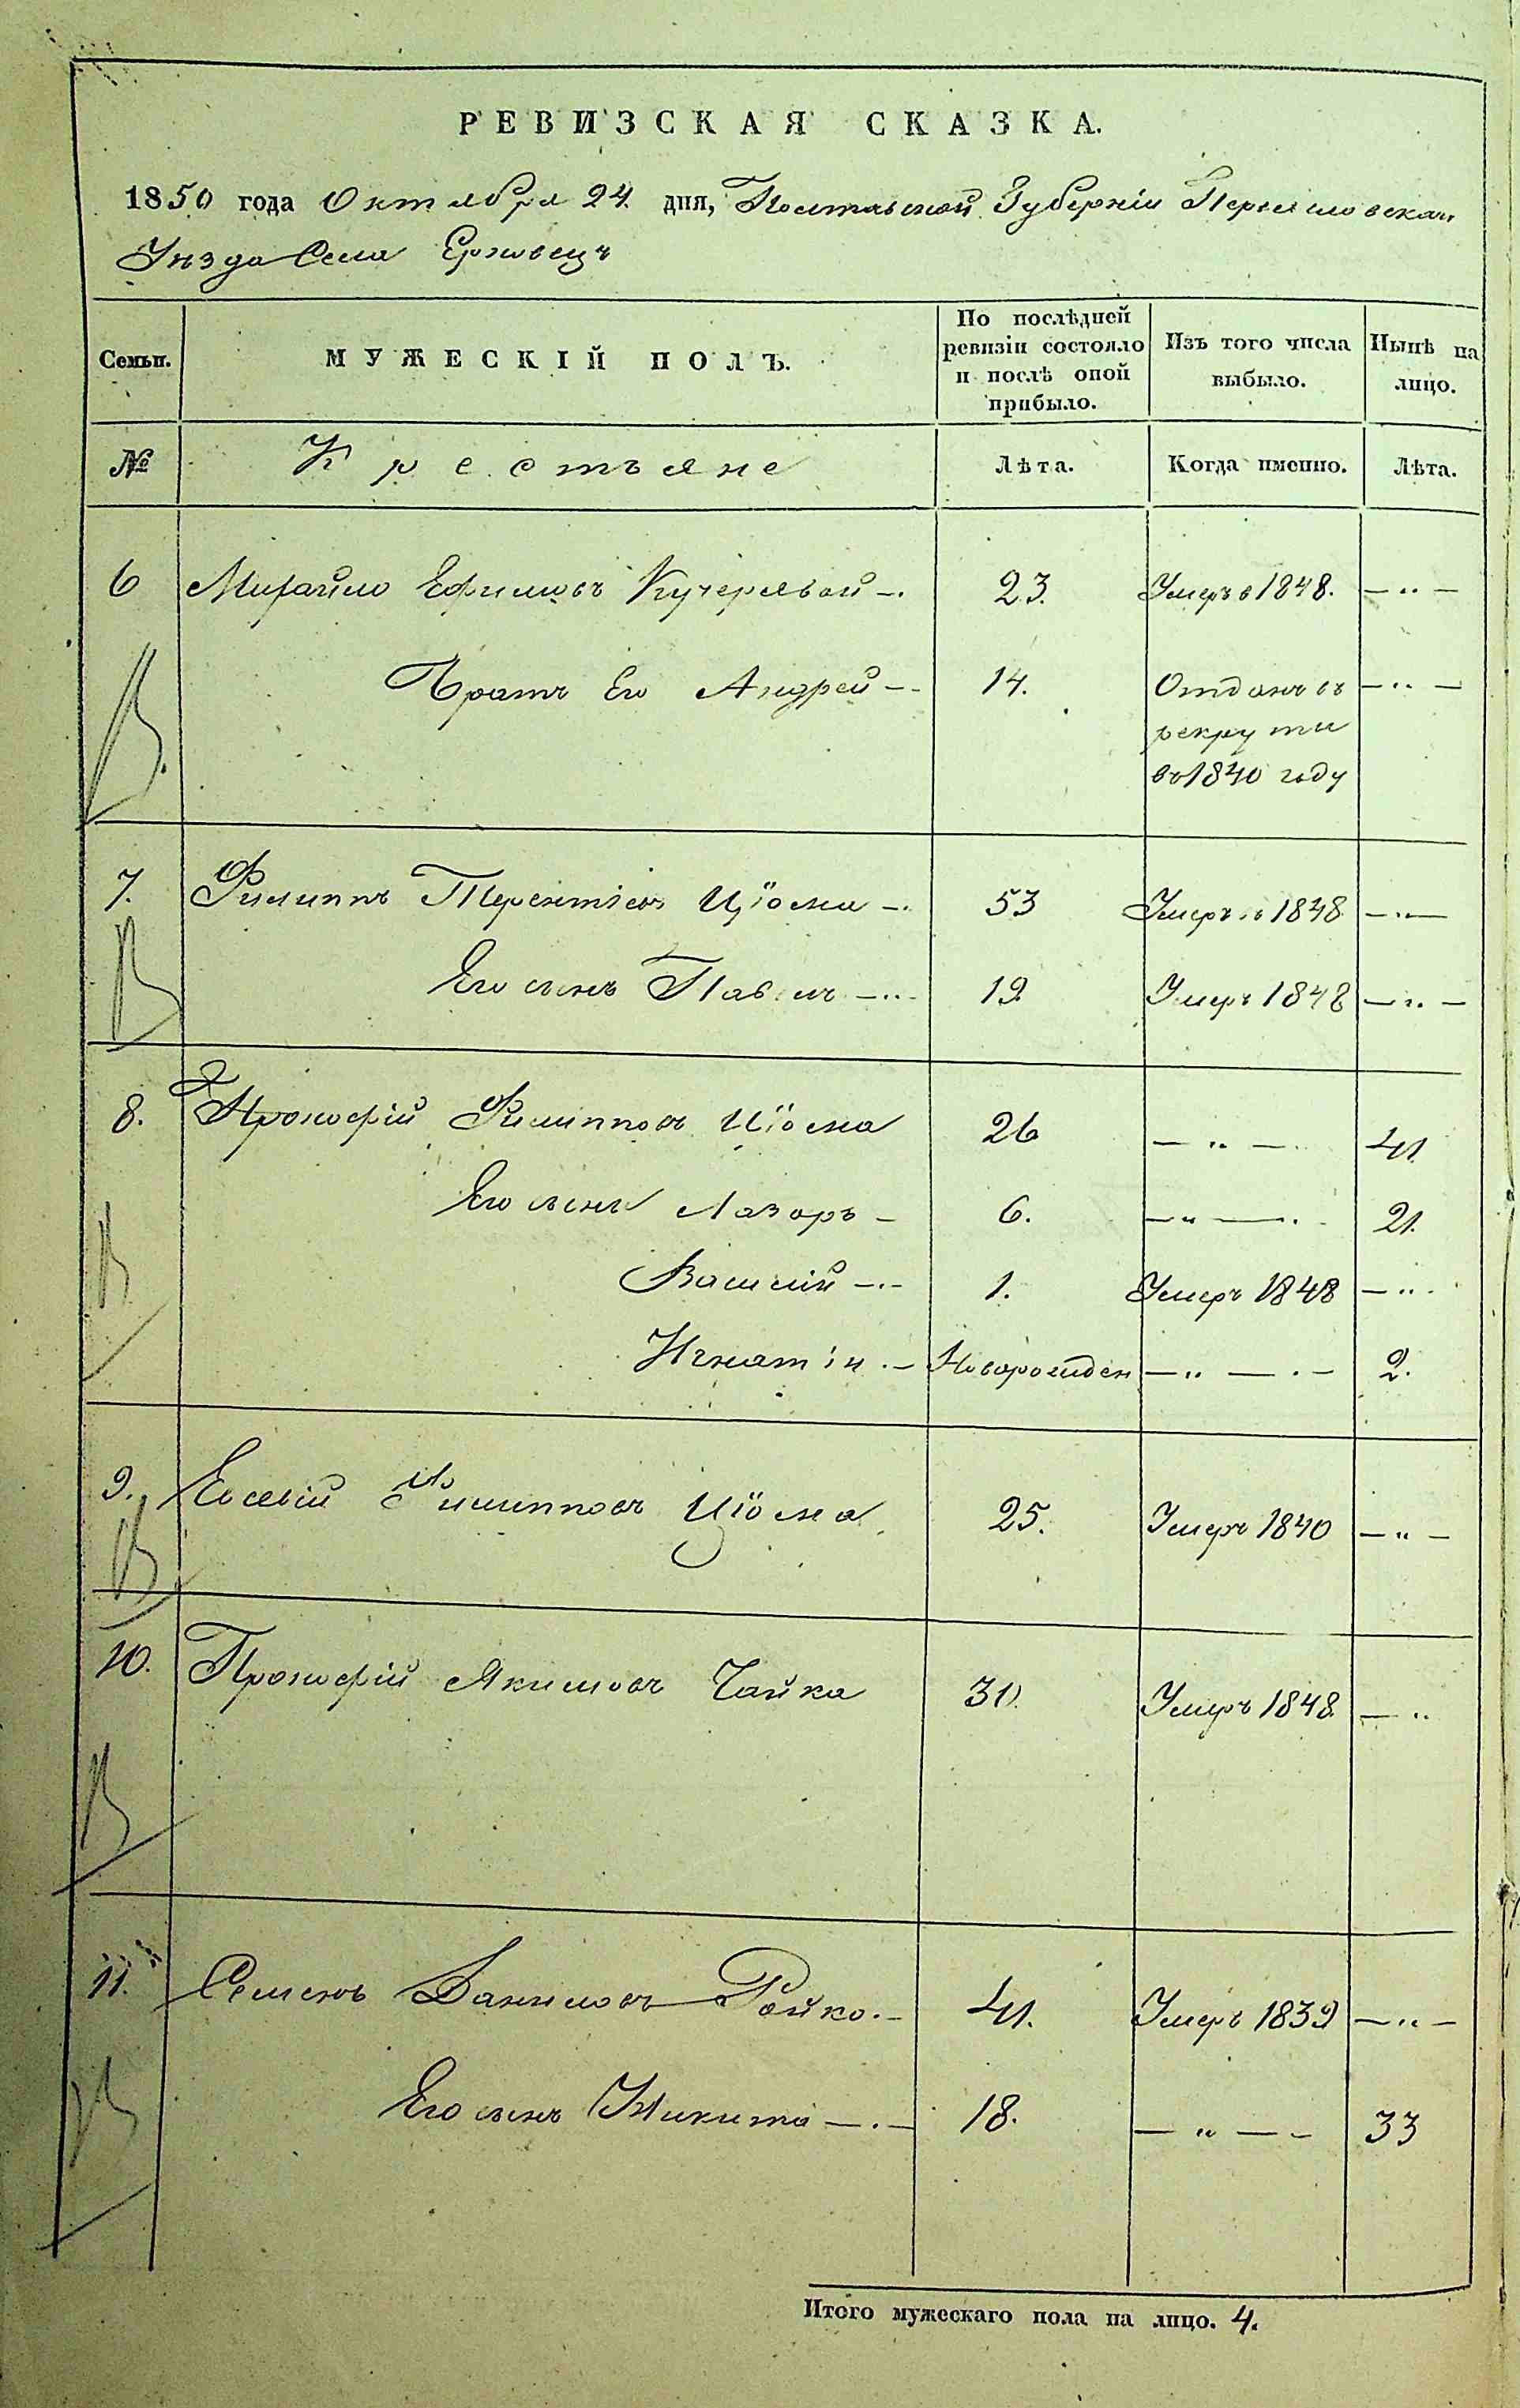 РЕВИЗСКАЯ СКАЗКА.
1850 года Октября 24. дня, Полтавской Губерніи Переяславскаго
Уезда Села Ерковецъ
Семьи.
МУЖЕСКІЙ ПОЛЪ.
По послѣдней ревизіи состояло и послѣ оной прибыло.
Изъ того числа выбыло.
Нынѣ на лицо.
№ Крестьяне Лѣта. Когда именно. Лѣта.
6 Михайло Ефимовъ Кучерявой 23. Умеръ в 1848.
Братъ Его Андрей 14. Отданъ въ
рекруты
въ 1840 году
7. Филиппъ Терентіевъ Цїома 53 Умеръ в 1848
Его сынъ Павелъ 19. Умеръ 1848
8. Прокофій Филипповъ Цїома 26 41.
Его сыны Лазоръ 6. 21.
Василій 1. Умеръ 1848
Игнатій Новорожден 2.
9. Евсевій Филипповъ Цїома 25. Умеръ 1840
10. Прокофій Якимовъ Чайка 31. Умеръ 1848
11. Семенъ Даниловъ Ройко. 41. Умеръ 1839
Его сынъ Никита 18. 33
Итого мужескаго пола на лицо. 4.